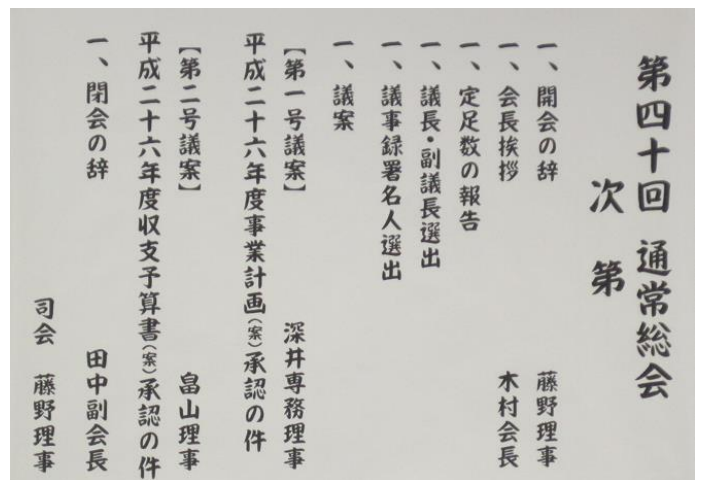 第四十回 通常総会
次 第
一、開会の辞 藤野理事
一、会長挨拶 木村会長
一、定足数の報告
一、議長・副議長選出
一、議事録署名人選出
一、議案
【第一号議案】 深井専務理事
平成二十六年度事業計画(案)承認の件
【第二号議案】 畠山理事
平成二十六年度収支予算書(案)承認の件
一、閉会の辞 田中副会長
司会 藤野理事